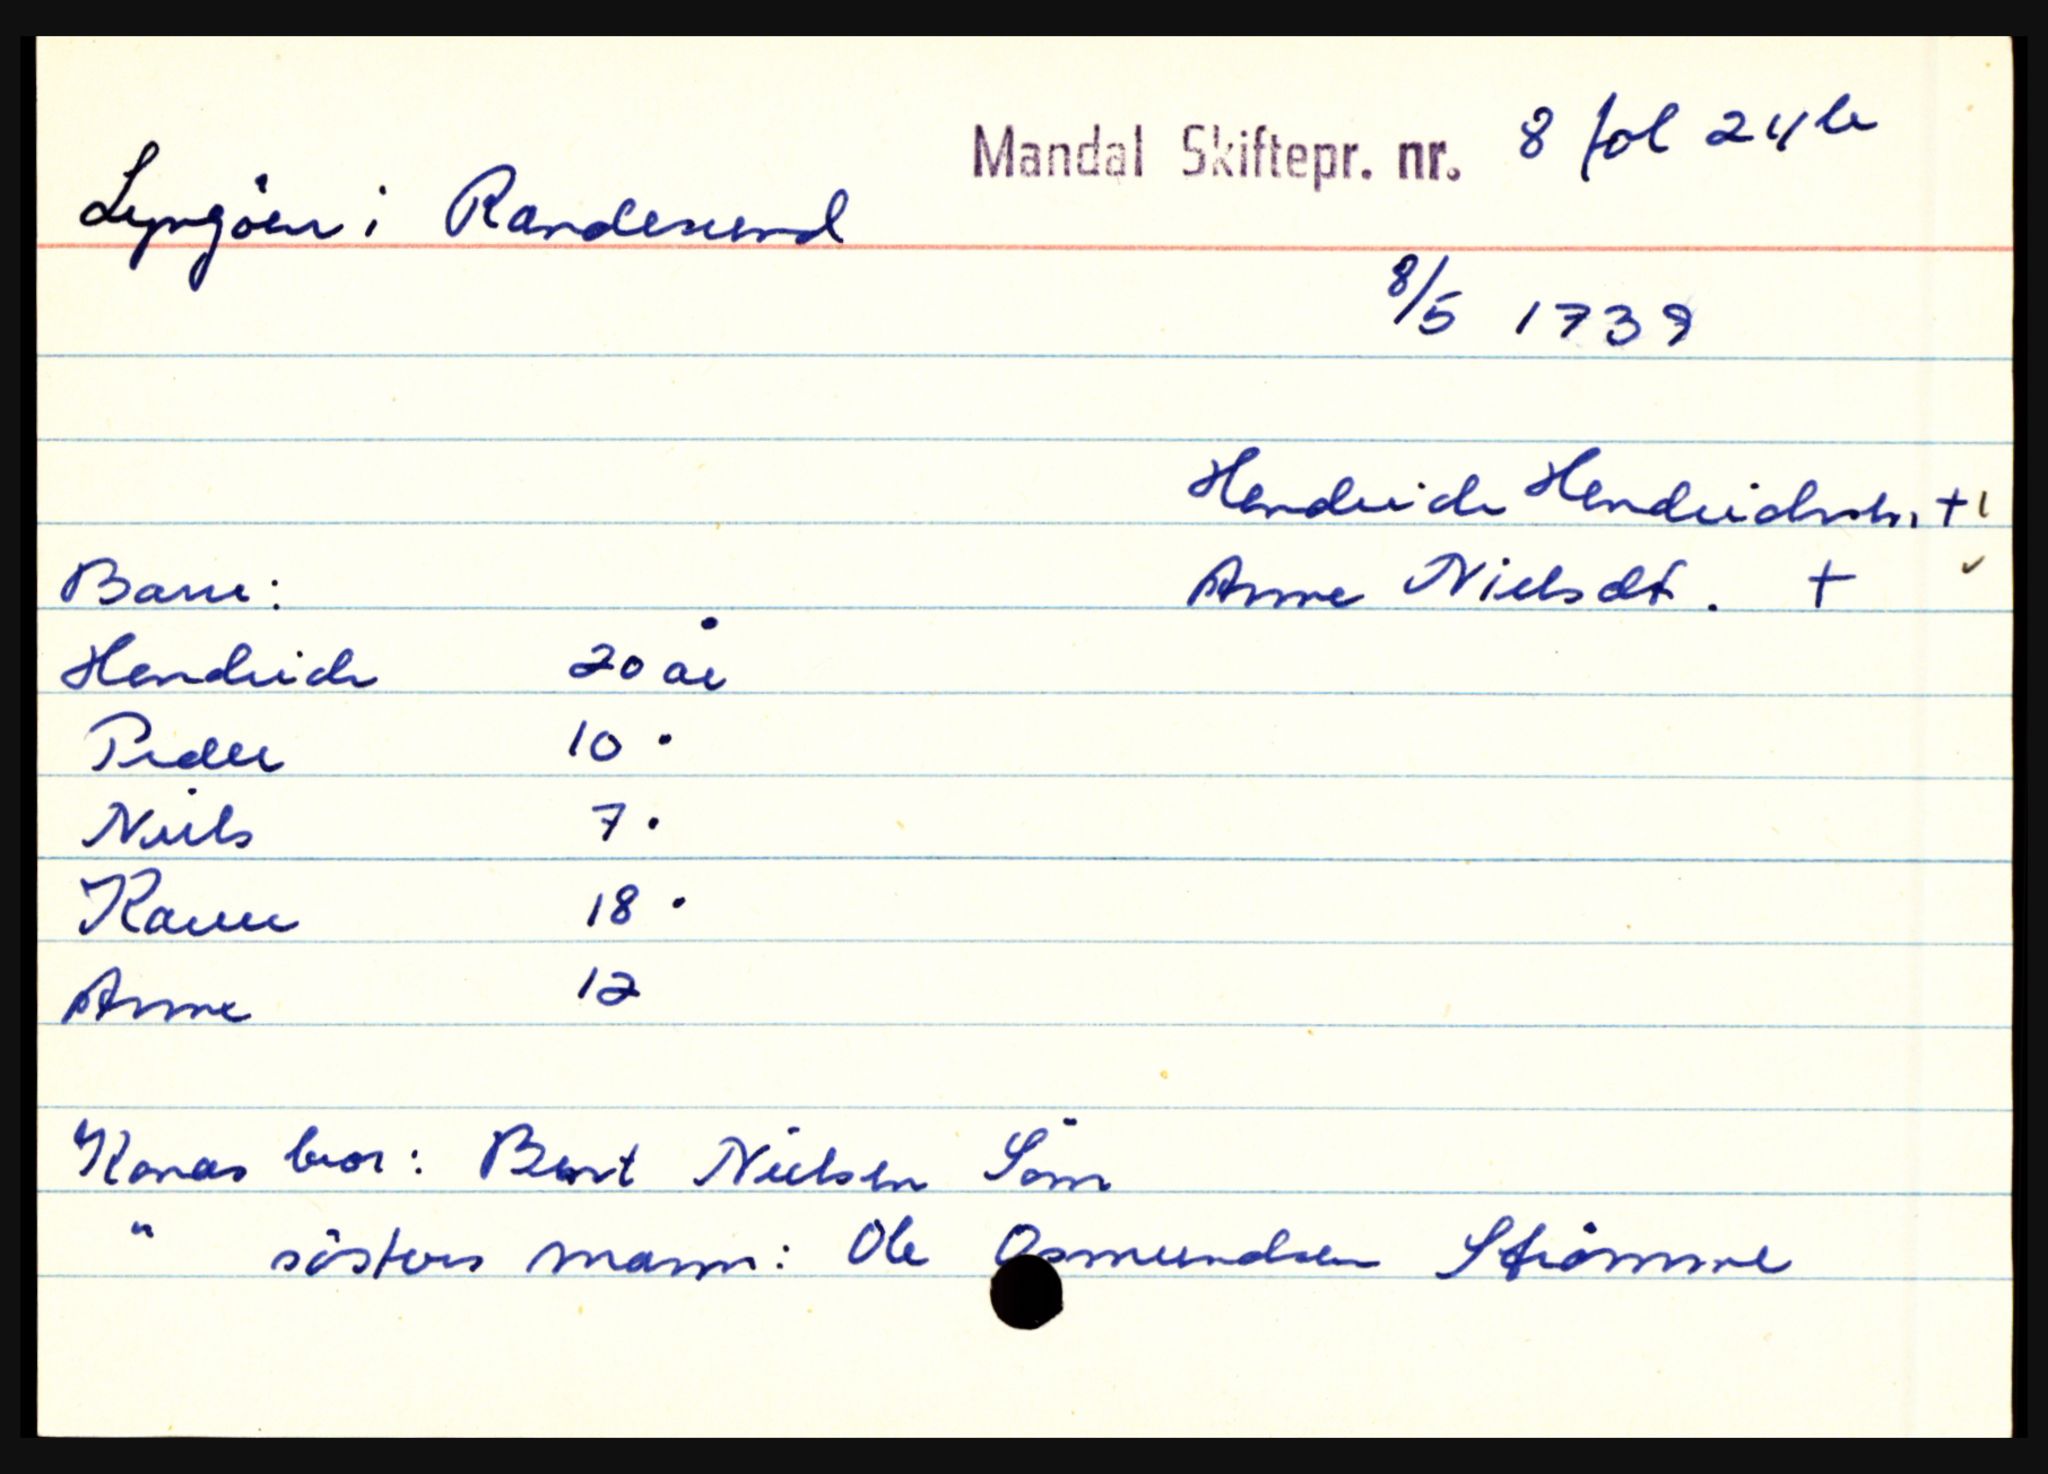 Mandal Skiftepr. nr. 8 fol 24b
Lyngöen i Randesund
8/5 1739
Hendrich Hendrichsen +
Barn: Anne Nielsdt. +
Hendrich 20 år
Peder 10 "
Niels 7 "
Karen 18 "
Anne 12
Konas bror: Bent Nielsen Söm
" søsters mann: Ole Osmundsen Strömme